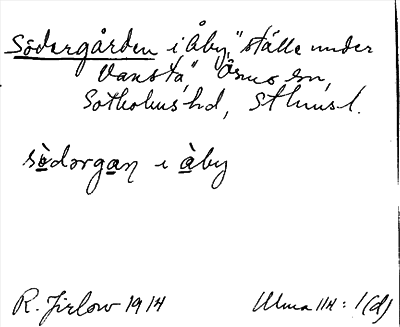 Södergården i Åby, "ställe under
Vansta," Ösmo sn,
Sotholms hd, Sthms l.
sòdərgan i àby
R. Jirlow 1914
Ulma 114 : 1(d)